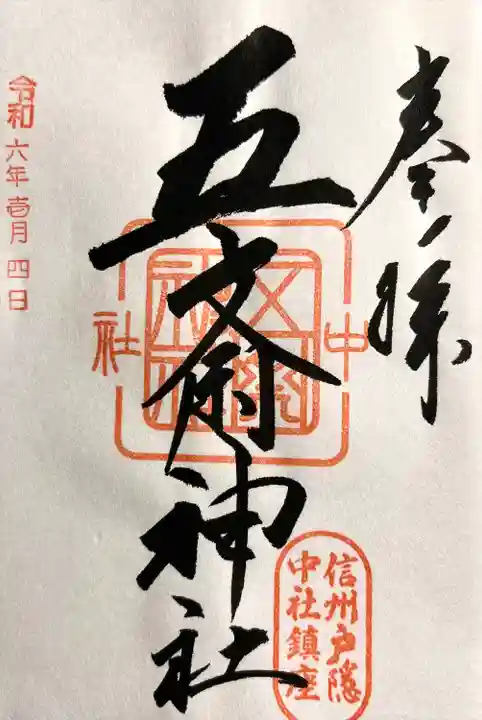 奉拝
五斎神社
中社
信州戸隠
中社鎮座
令和六年壱月四日